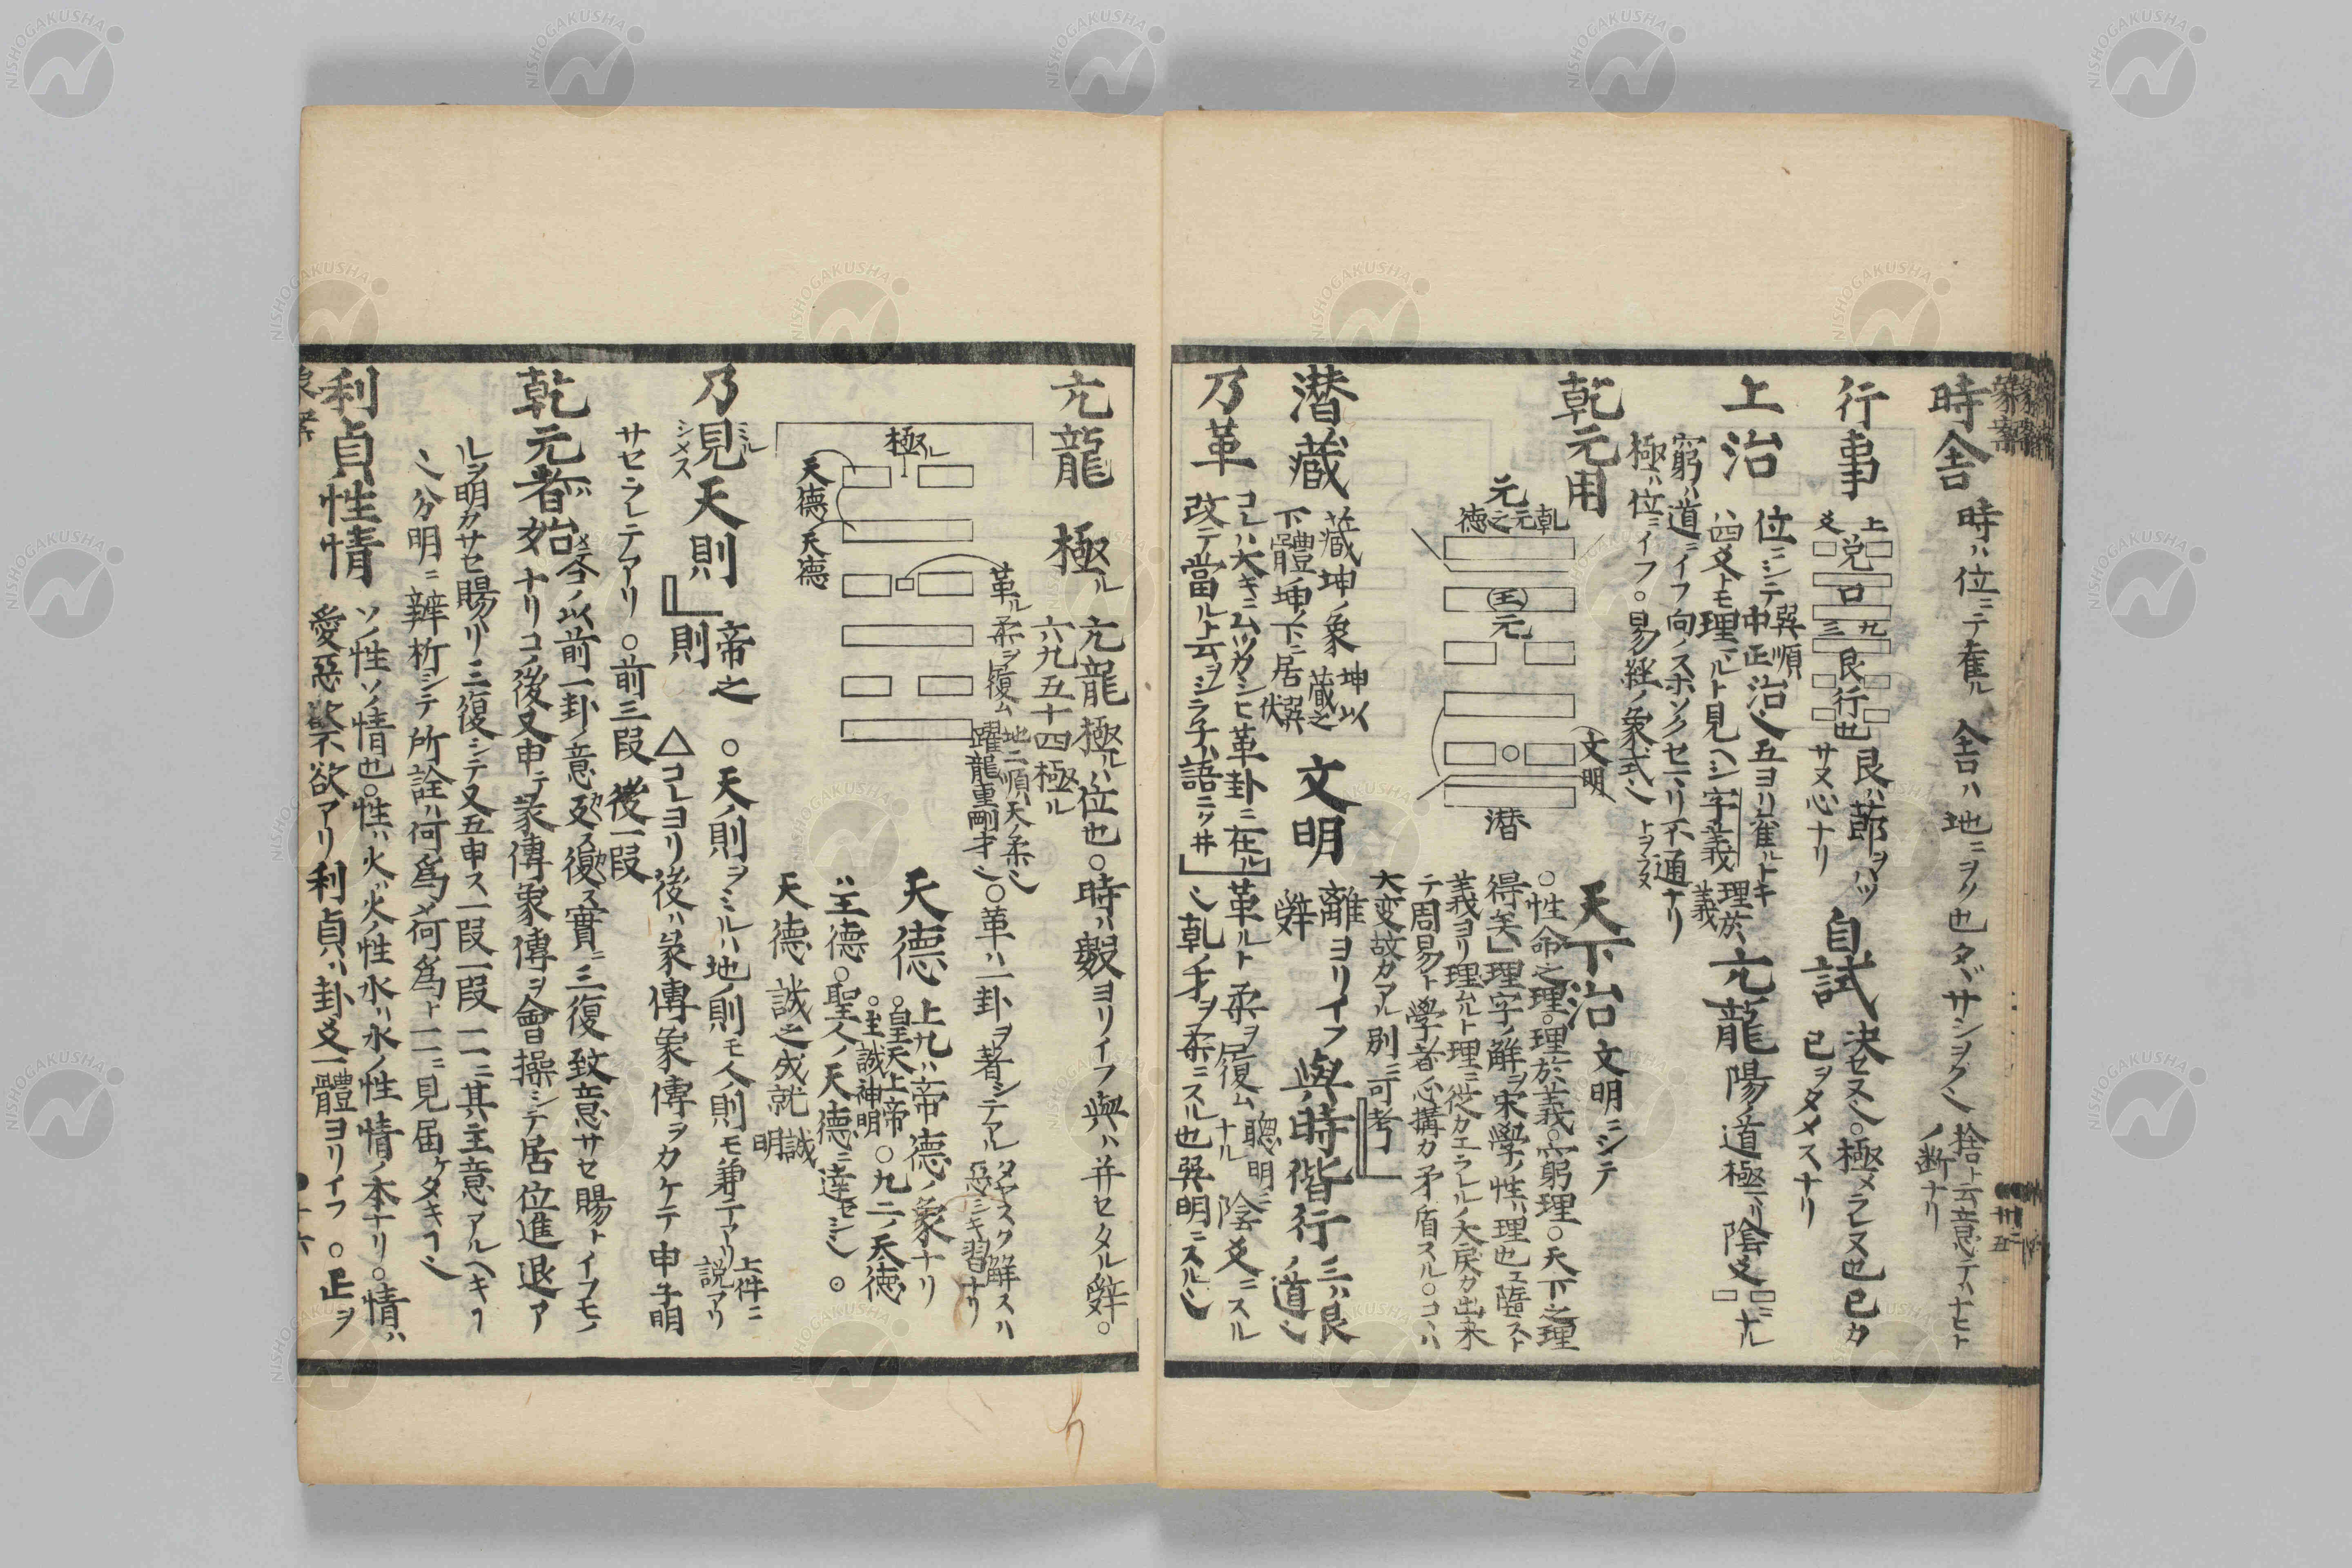 時舎 時ハ位ニテ雀ル 舎ハ地ニヲソ也タヾサシヲク〵 捨ト云意デハナヒト
ノ断ナリ
行事 上爻 兌 口 九三 艮 行也 艮ハ節ヲハヅ
サヌ心ナリ
自試 決セヌ〵○極メラレヌ也已カ
已ヲタメスナリ
上治 位ニシテ巽順中正治〵五ヨリハ雀ルトキ
ハ四爻トモ理ルト見ヘシ字義 理於義
亢龍 陽ノ道極リ陰爻ニナル
窮ハ道ニイフ向ノスホソクセマリ不通ナリ
極ハ位ニイフ○易経ノ象式〵
乾元用
元
乾元之徳
王元
文明
潜
天下治 文明ニシテ
○性命之理○理於義○窮理○天下之理
得矣」理字ノ解ヲ宋學ノ性ハ理也ニ隨スト
義ヨリ理ムルト理ニ従カエラレルノ大戻カ出来
テ周易ト學者心構カ矛盾スル○コヽハ
大変故カアル別ニ可考
潜蔵 蔵坤ノ象 坤以蔵之
下體坤ノ下ニ居巽伏
文明 離ヨリイフ
辭
與時偕行 三ハ艮
ノ道〵
乃革 コレハ大キニムツカシヒ革卦ニ在ル」革ルト柔ヲ履ム 聰明ニナル 陰爻ニスル
改テ當ルト云ヲシラ子ハ語ニクヰ 〵乾ノ才ヲ柔ニスル也巽明ニスル〵
亢龍 極ル 亢龍極ルハ位也○時ハ數ヨリイフ與ハ并セタル辭○
六九五十四極ル
極ル
天德
天德
革ル柔ヲ履ム 地二順天ノ柔〵
躍龍重剛才〵○革ハ一卦ヲ著シテアル タヤスク解スハ
惡シキ習ナリ
天德 上九ハ帝德ノ象ナリ
○皇天上帝○九二ノ天德
○至誠神明
ハ主德○聖人ノ天德ニ達セシ〵○
天德 誠之成就 誠明
乃見天則 ミル シメス
帝之則 ○天ノ則ヲミルハ地ノ則モ人ノ則モ兼テアリ 上件ニ説アリ
△コレヨリ後ハ彖傳象傳ヲカケテ申子明
サセラレテアリ○前三段 後一段
乾元者始 〆今ノ以前一卦ノ意 殘ス復ス實ニ三復致意サセ賜トイフモノ
ナリコノ後又申テ彖傳象傳ヲ會操シテ居位進退ア
ルヲ明カサセ賜リ三復シテ又五申ス一段一段一一ニ其主意アルヘキヿ
〵分明ニ辨析シテ所詮ハ何為荷為ト一一ニ見届ケタキヿ〵
利貞性情 ソノ性ソノ情也○性ハ火ハ火ノ性水ハ水ノ性情ノ本ナリ○情ハ
愛惡禁欲アリ利貞ハ卦爻一體ヨリイフ○正ヲ
NISHOGAKUSHA